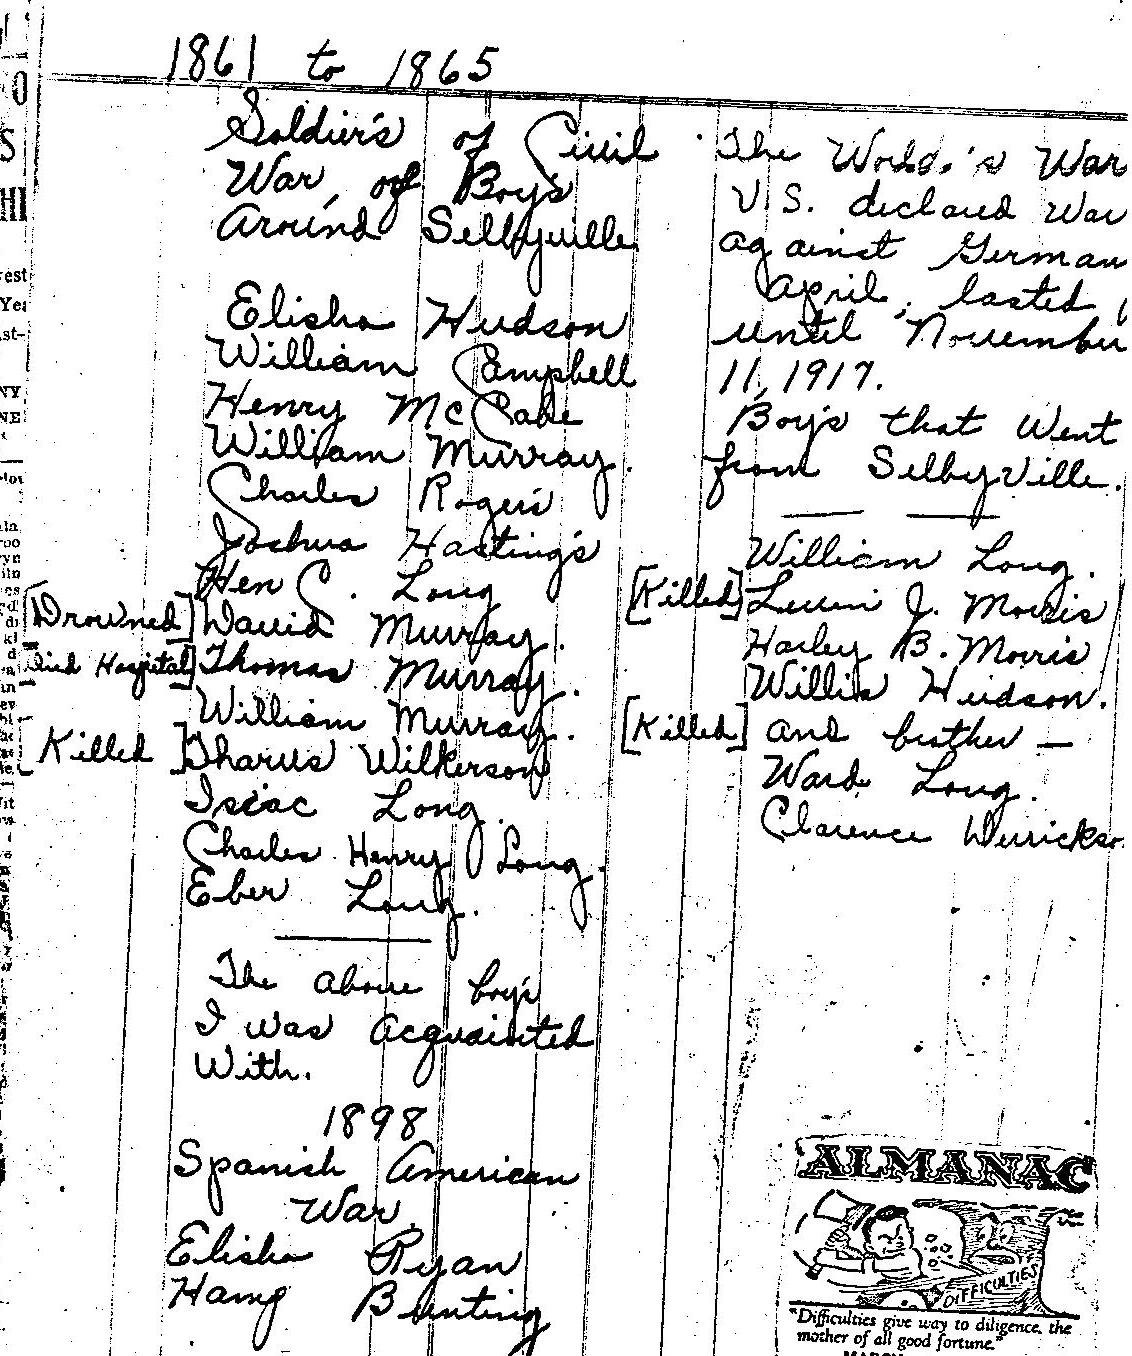 1861 to 1865
Soldier's of Civil
War, of Boy's
Around Selbyville
Elisha Hudson
William Campbell
Henry McCabe
William Murray.
Charles Roger's
Joshua Hasting's
Hen C. Long
[Drowned] David Murray.
Died Hospital] Thomas Murray.
William Murray.
[Killed] Dharus Wilkerson
Isiac Long.
Charles Henry Long.
Eber Long.
The above boy's
I was acquainted
With.
1898
Spanish American
War.
Elisha Ryan
Bunting
The World's War
U.S. declared War
against German
April, lasted
until November
11, 1917.
Boy's that Went
from SelbyVille.
William Long.
[Killed] J. Morris
Harley B. Morris
Willis Hudson.
[Killed] and brother —
Ward Long.
Clarence
ALMANAC
DIFFICULTIES
"Difficulties give way to diligence, the
mother of all good fortune."